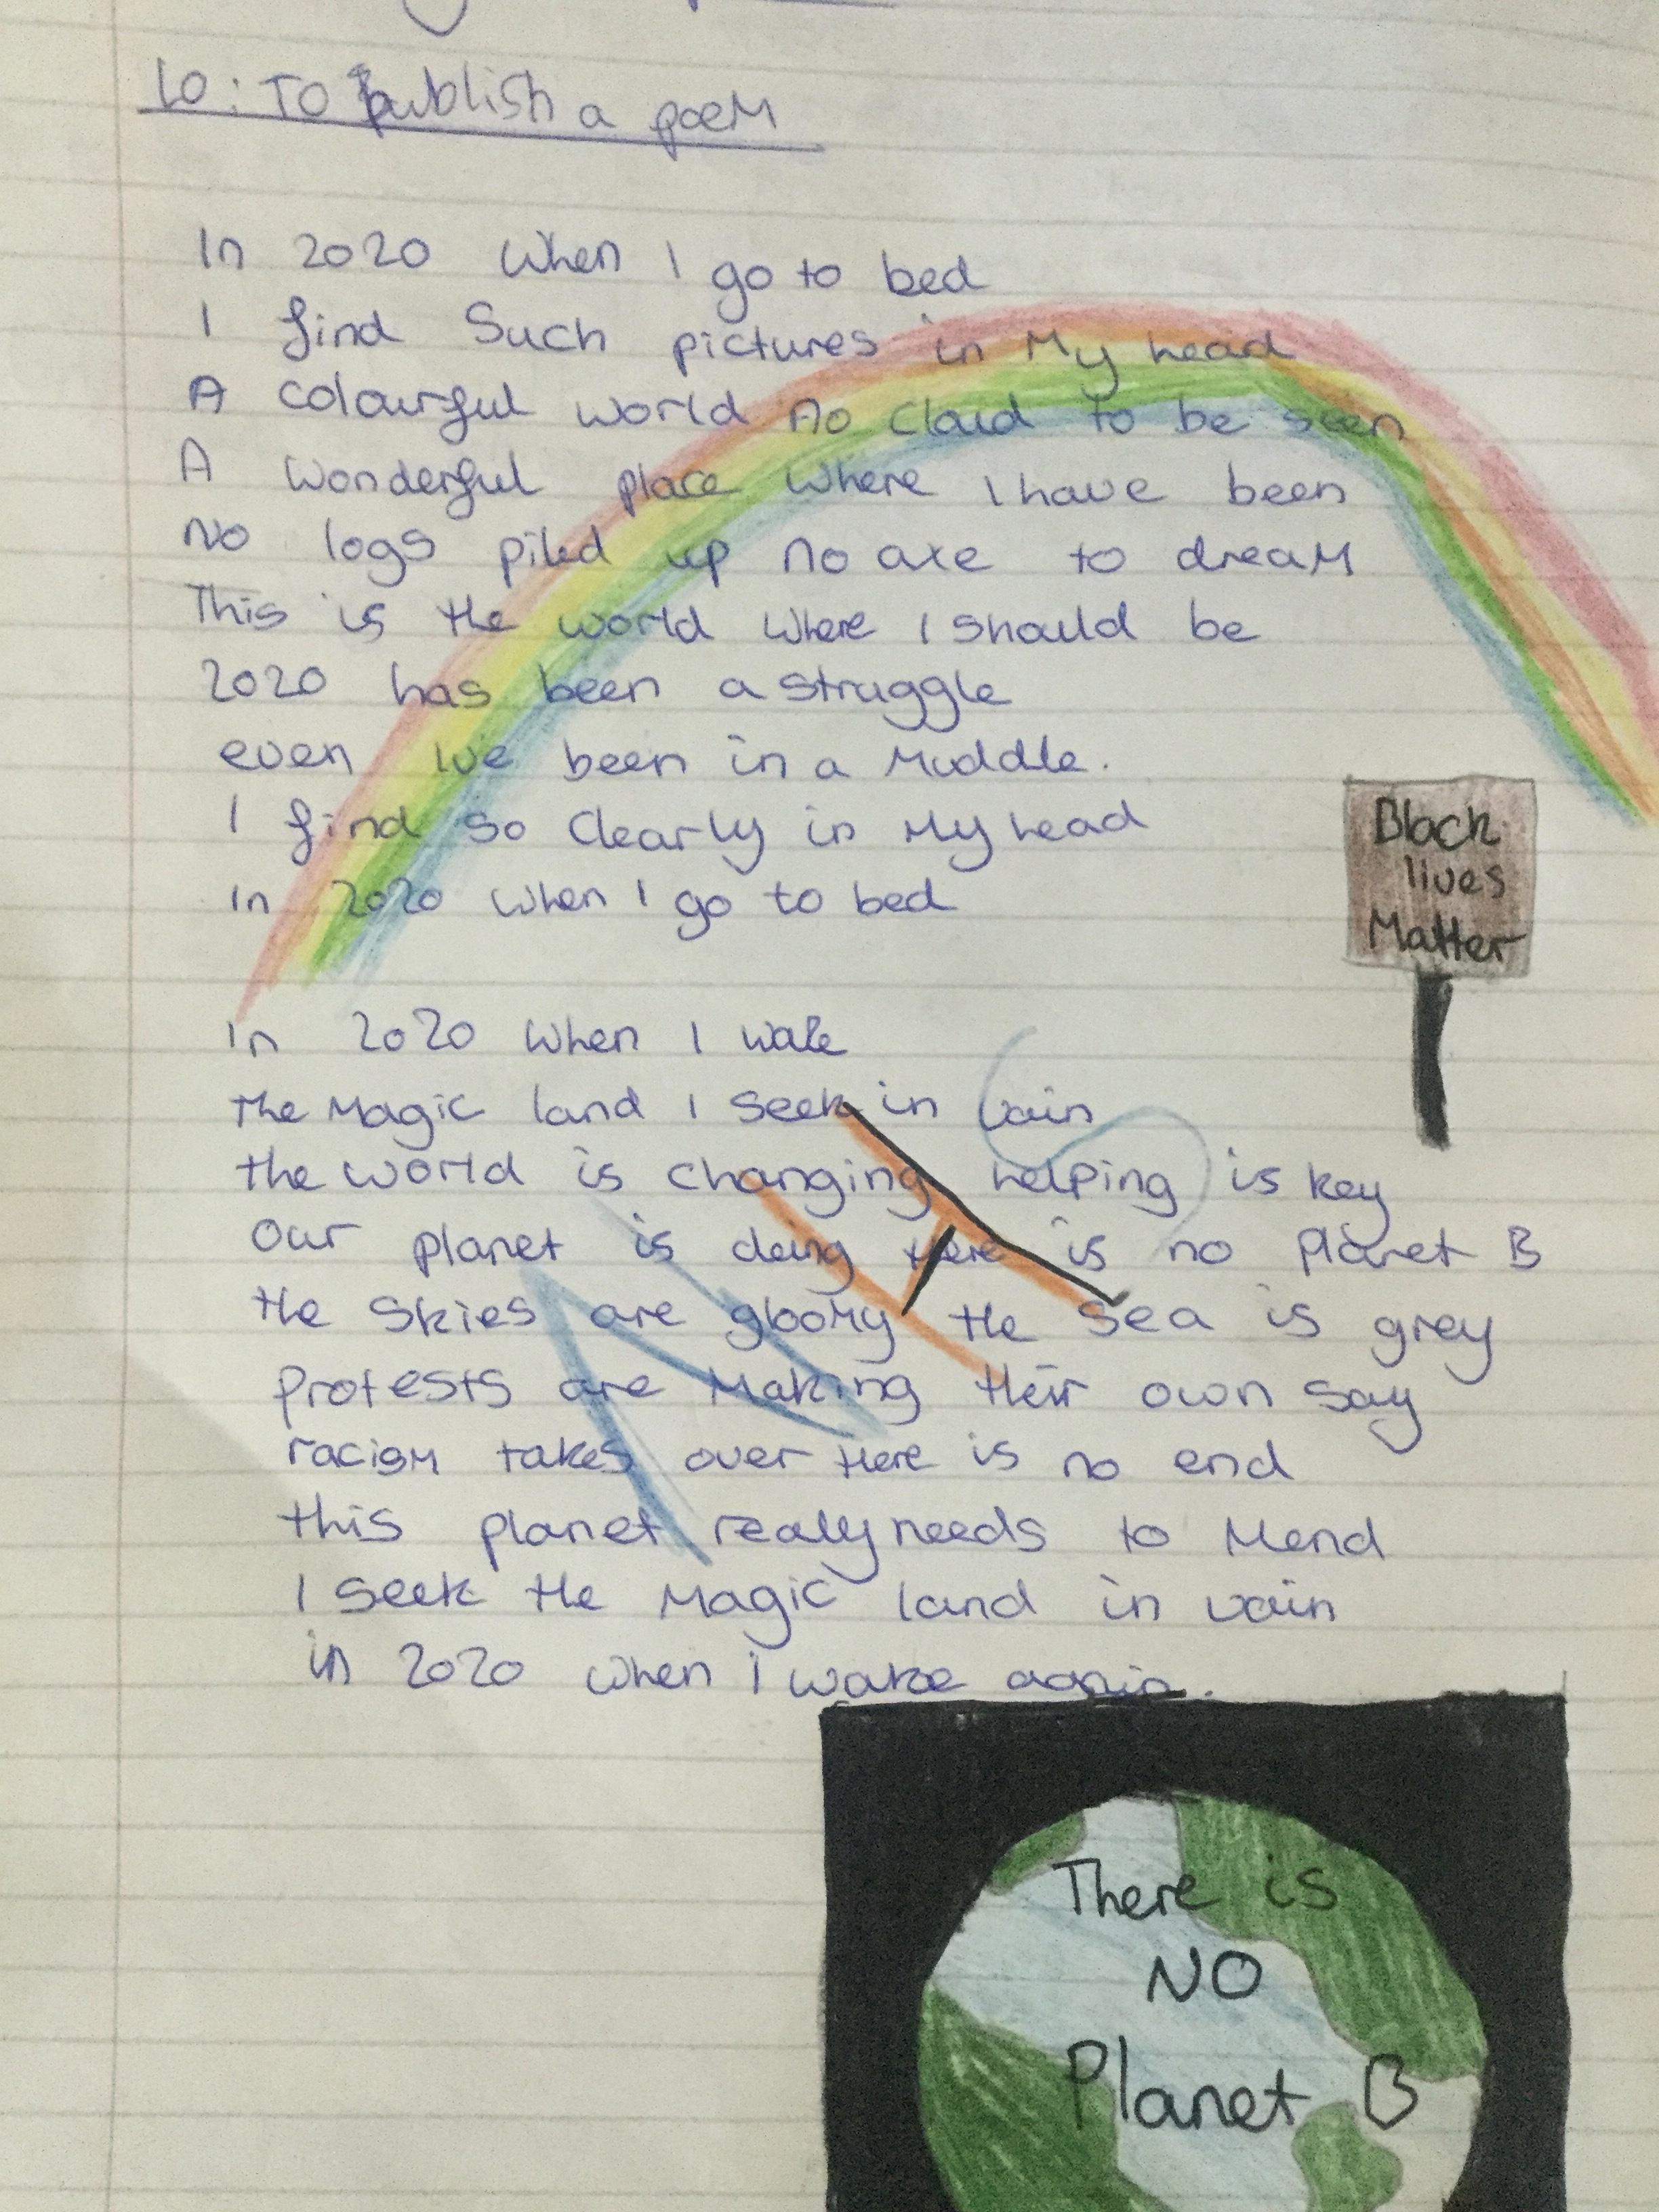 LO: TO publish a poem
In 2020 when I go to bed
I find Such pictures in My head
A colourful world no cloud to be seen
A wonderful place where I have been
No logs piled up no axe to dream
This is the world where I should be
2020 has been a struggle
even ive been in a Muddle.
I find so Clearly in My head
In 2020 when I go to bed
In 2020 when I wake
the Magic land I seek in vain
the world is changing helping is key
our planet is deing there is no planet B
the skies are gloomy the sea is grey
protests are Making their own say
racism takes over there is no end
this planet realy needs to Mend
I seek the Magic land in vain
in 2020 when I wake again.
Black
lives
Matter
There is
NO
Planet B